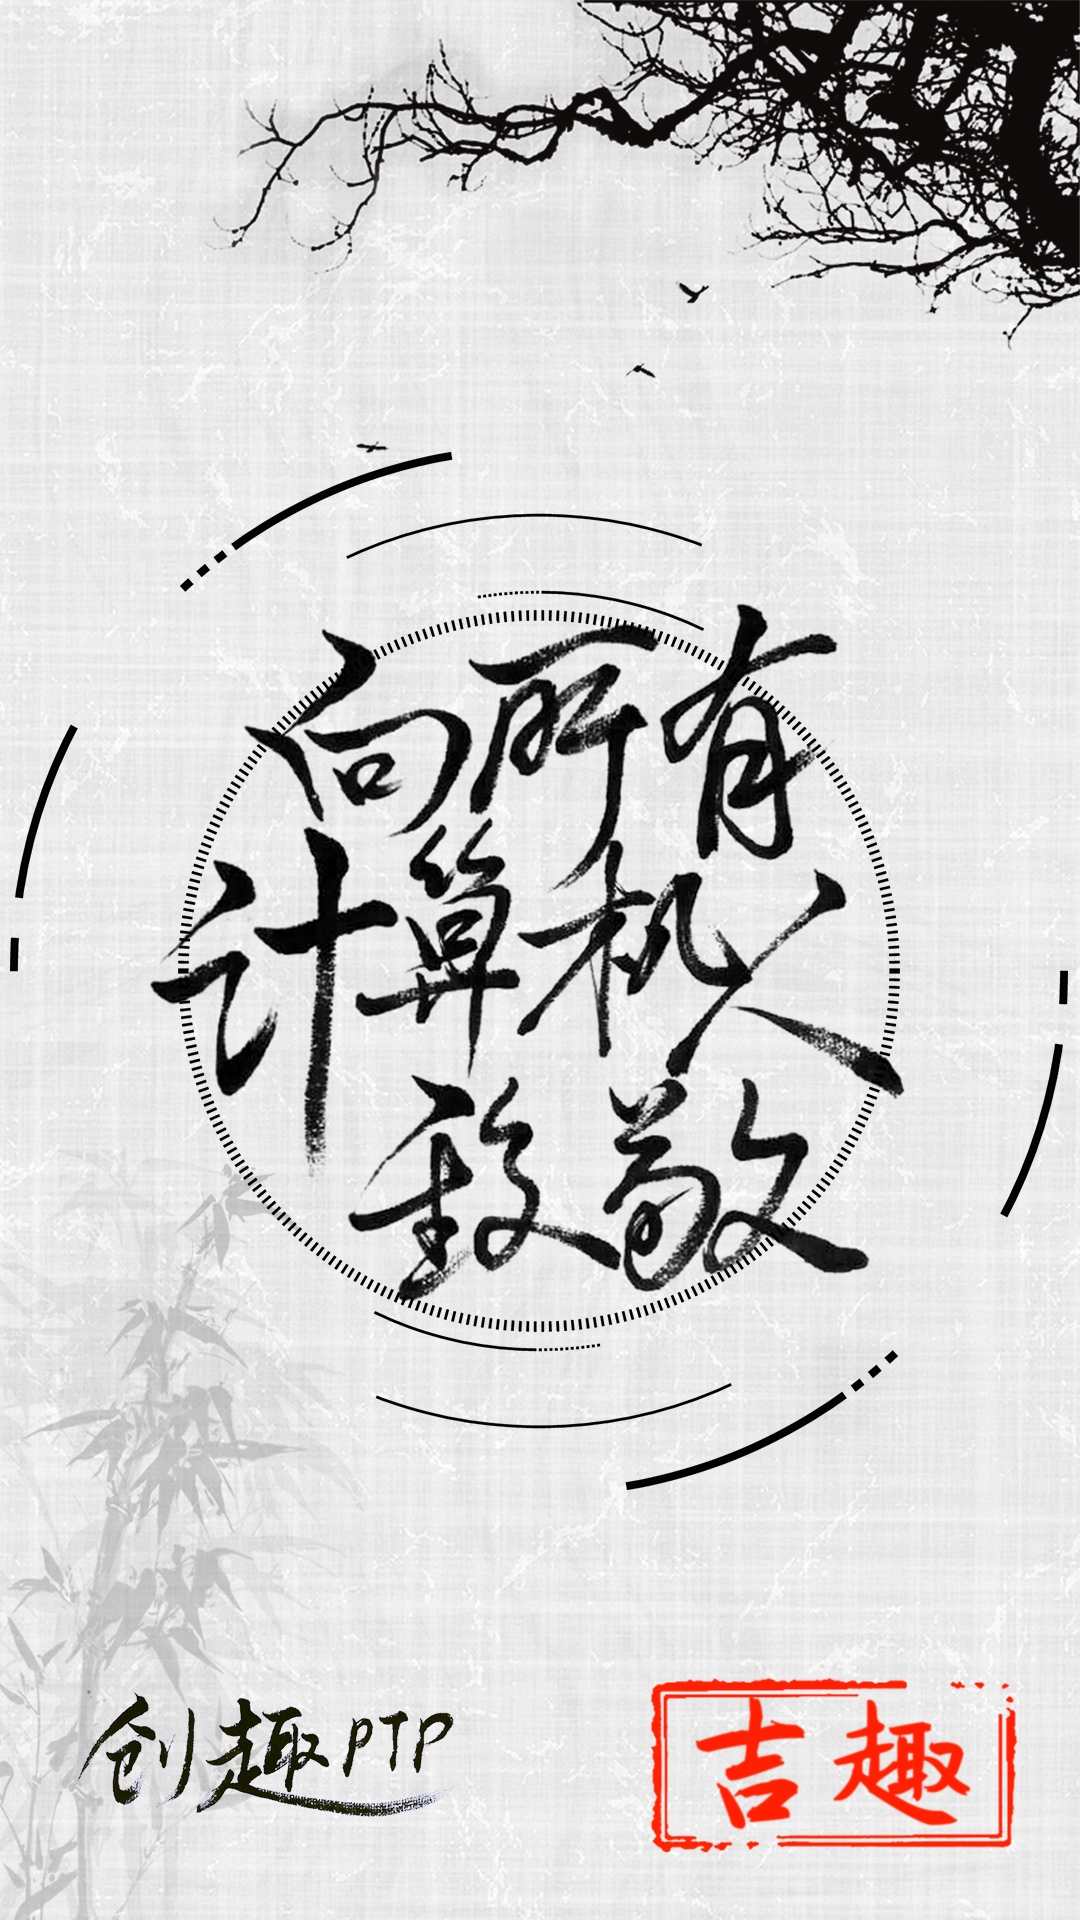 向所有
计算机人
致敬
创趣PTP
吉趣